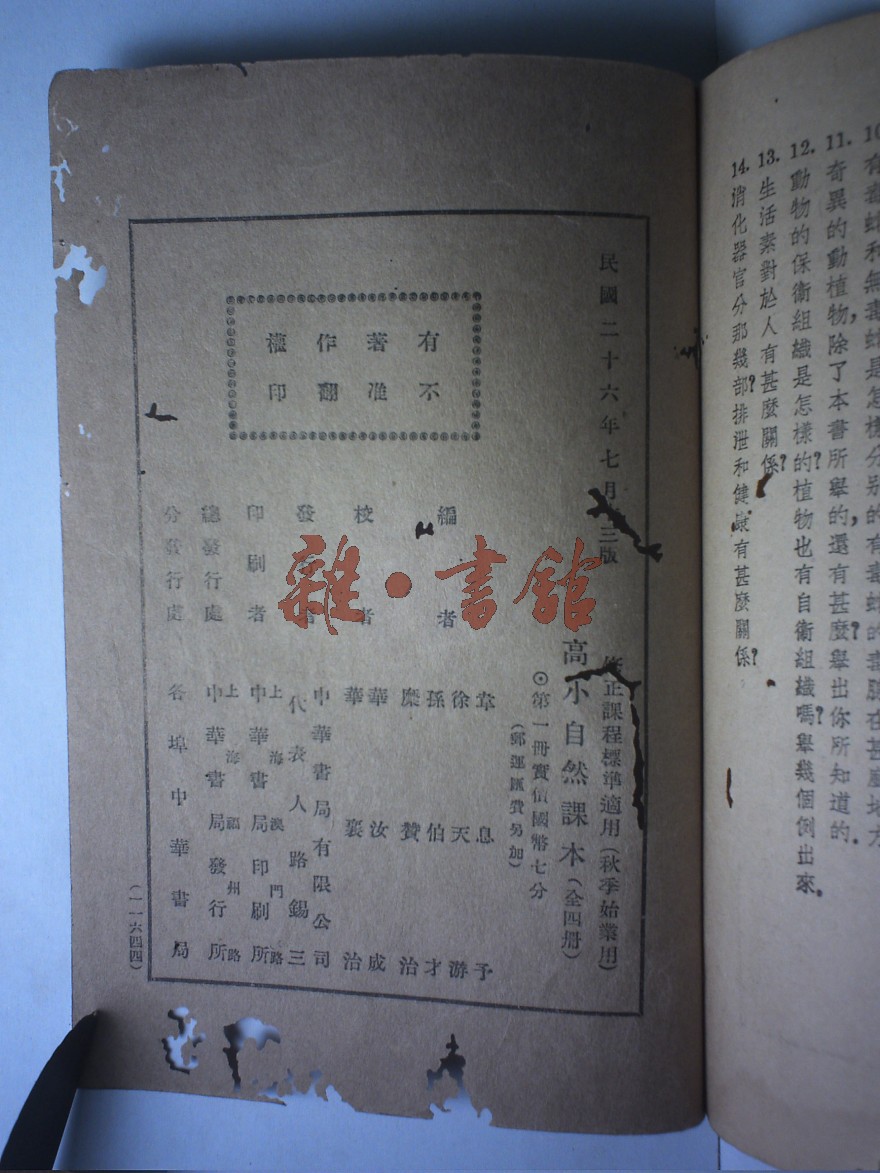 有毒蛇和無毒蛇是怎樣分別的
11. 奇異的動植物,除了本書所舉的,還有甚麼?舉出你所知道的.
12. 動物的保衛組織是怎樣的?植物也有自衛組織嗎?舉幾個例出來.
13. 生活素對於人有甚麼關係?
14. 消化器官分那幾部?排泄和健康有甚麼關係?
民國二十六年七月 三版
修正課程標準適用(秋季始業用)
高小自然課本(全四册)
⊙第一册實價國幣七分
(郵運匯費另加)
有著作權
不准翻印
編 者
韋息予
徐天游
孫伯才
糜贊治
校 者
華汝成
華襄治
發 者
中華書局有限公司
代表人路錫三
印刷者
上海澳門路
中華書局印刷所
總發行處
上海福州路
中華書局發行所
分發行處
各埠中華書局
(一一六四四)
雜·書館